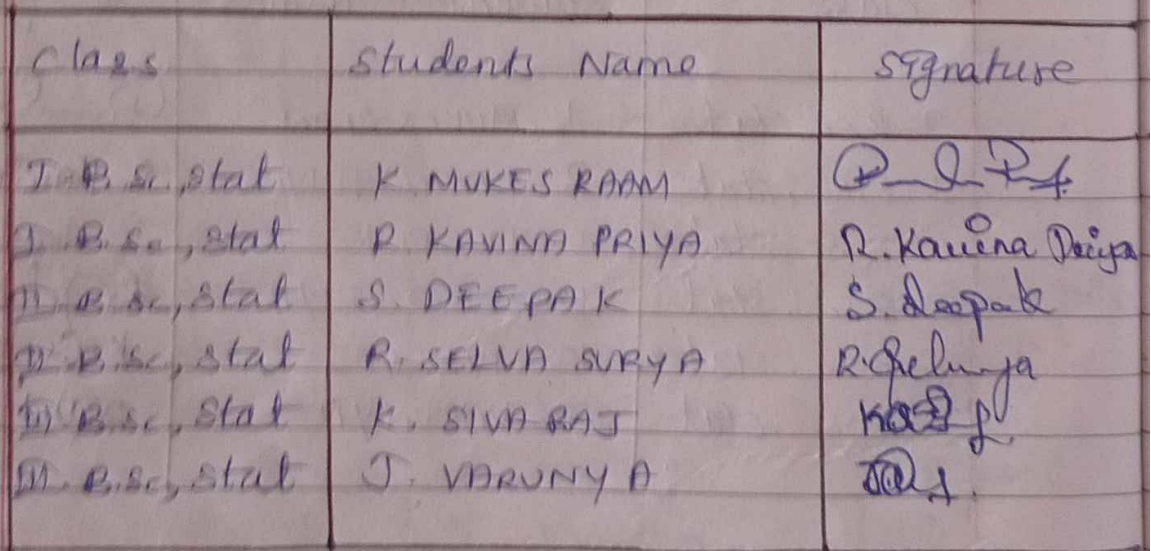 Class Students Name Signature
I B.Sc, Stat K MUKES RAAM
I. B.Sc, Stat R. KAVINA PRIYA R. Kavina Priya
II B.Sc, Stat S. DEEPAK S. Deepak
II B.Sc, Stat R. SELVA SURYA
III B.Sc, Stat K. SIVA RAJ
III. B.Sc, Stat J. VARUNYA